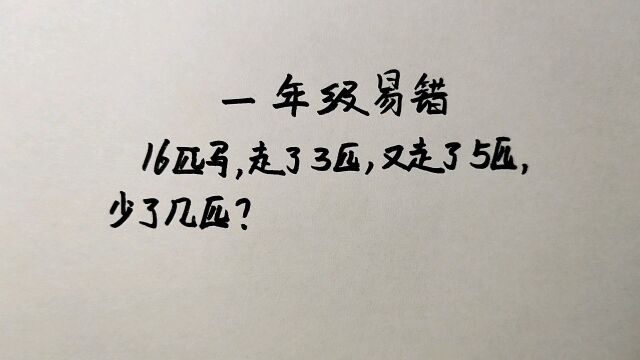 一年级易错
16匹马,走了3匹,又走了5匹,
少了几匹?